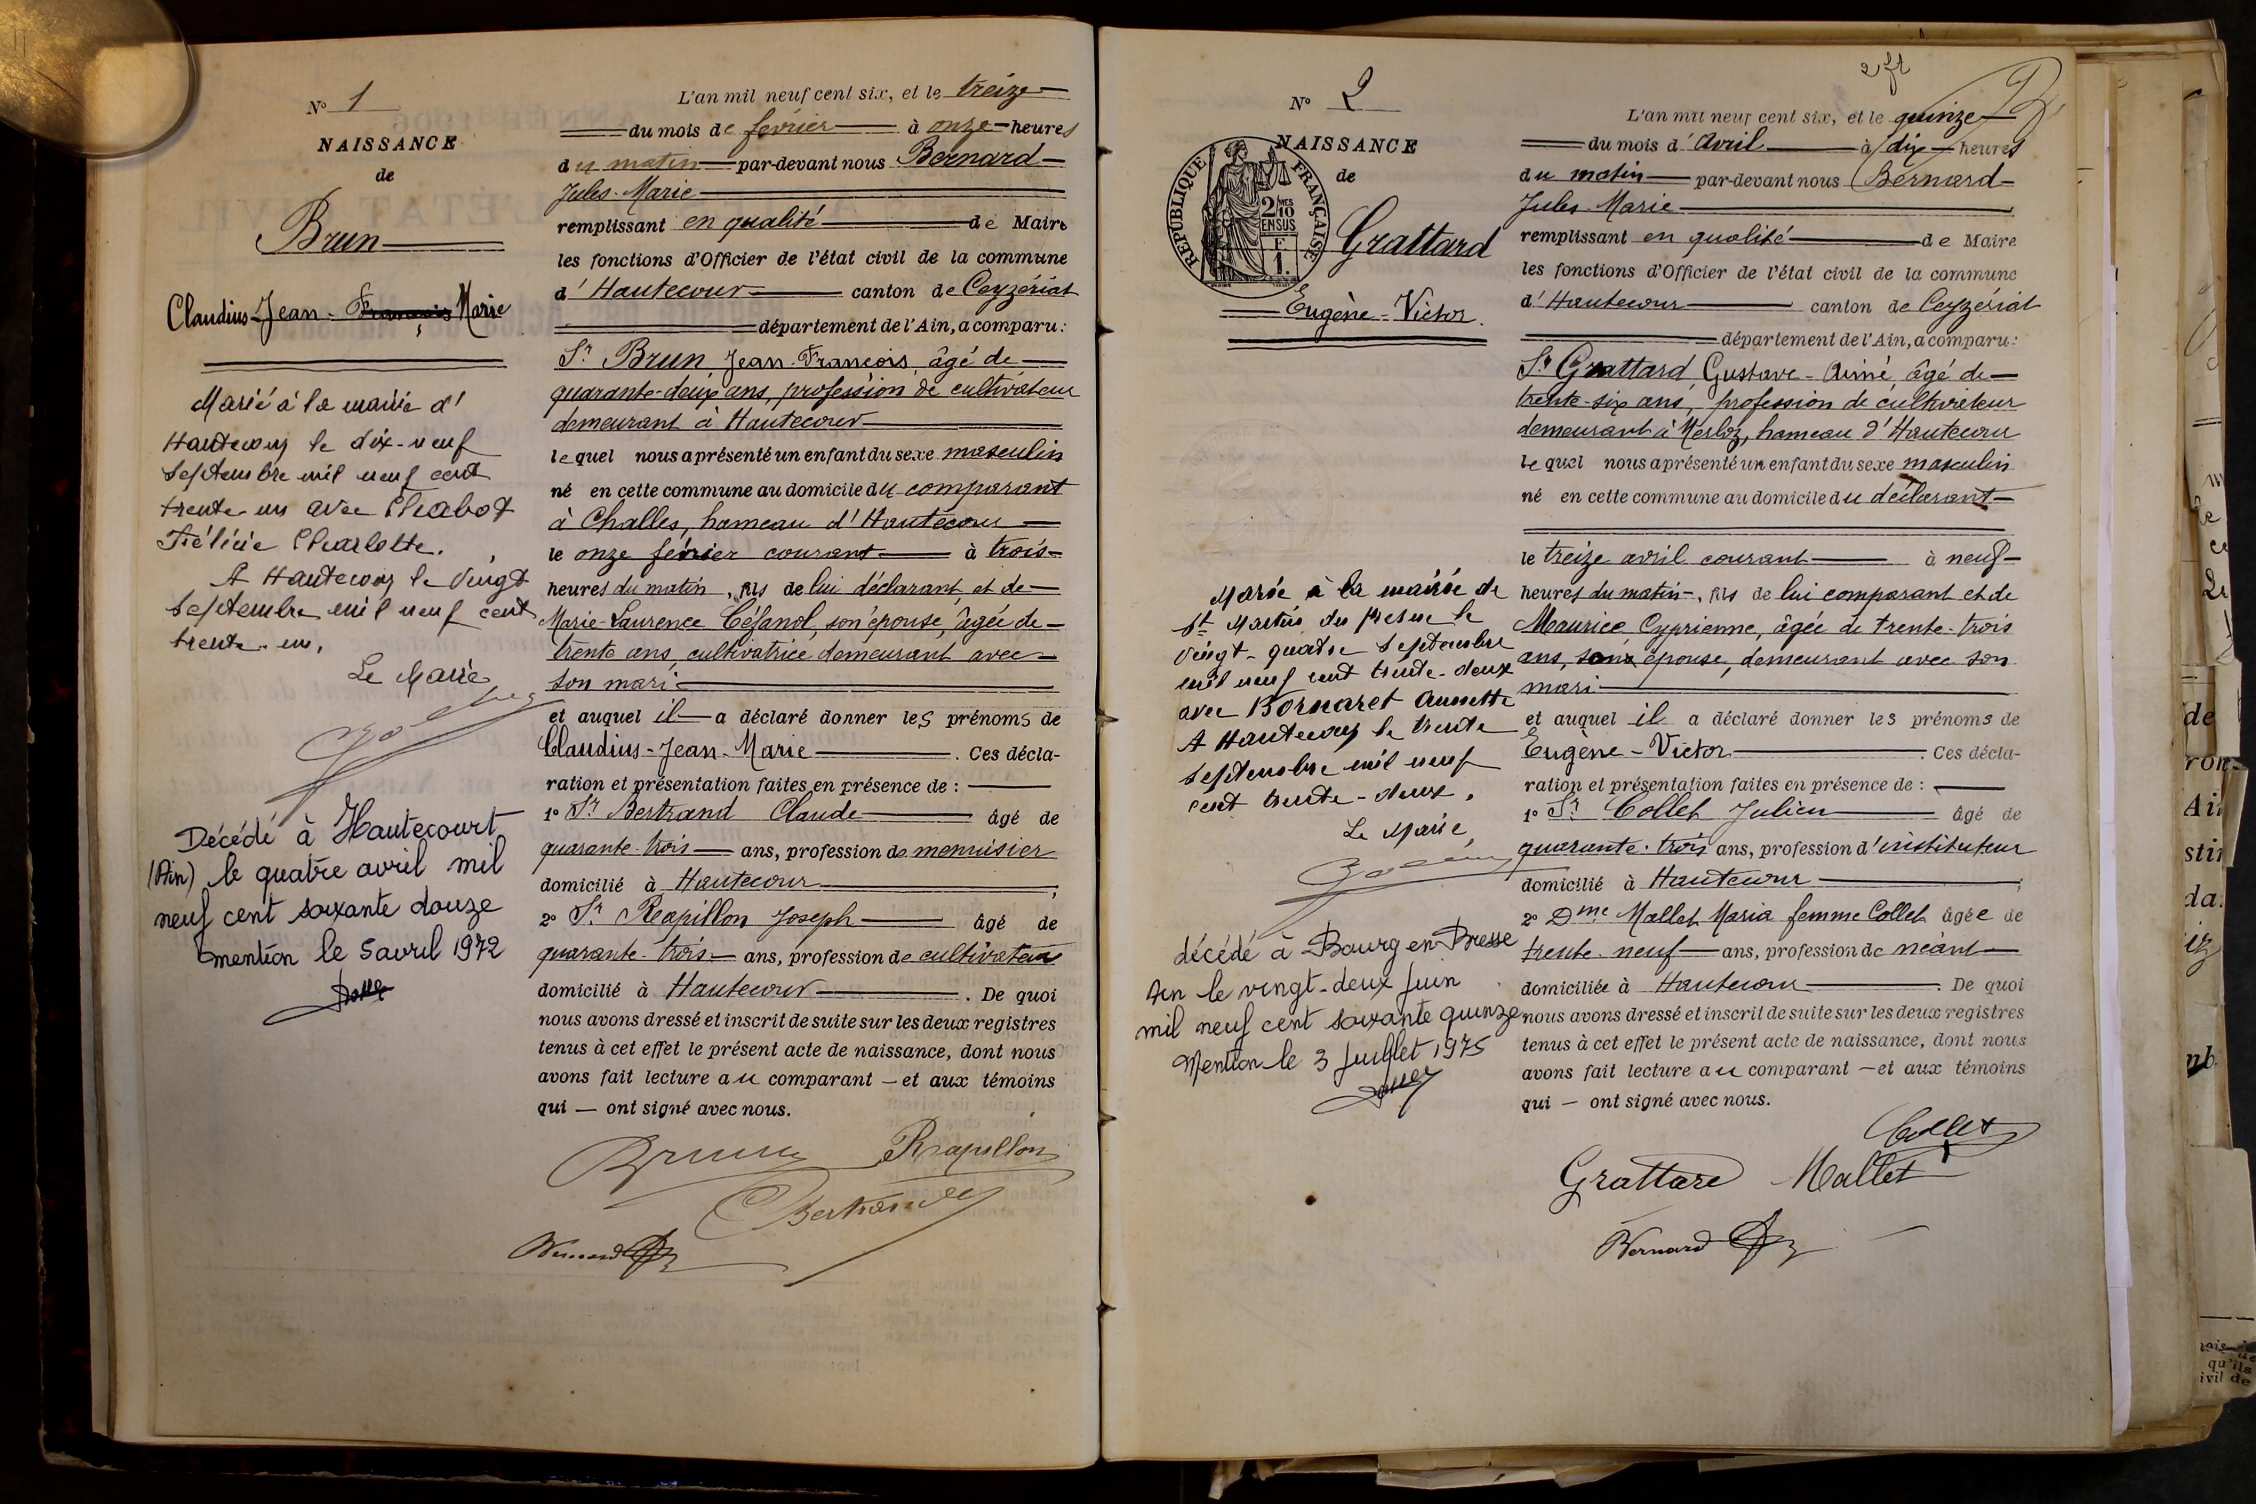 N° 1
NAISSANCE
de
Brun
Claudius-Jean-François Marie
Marié à la mairie d'
Hautecour le dix-neuf
Septembre mil neuf cent
trente un avec Chabot
Félicie Charlotte.
A Hautecour le Vingt
Septembre mil neuf cent
trente-un.
Le Maire
Décédé à Hautecourt
(Ain) le quatre avril mil
neuf cent soixante douze
mention le 5 avril 1972
L'an mil neuf cent six, et le treize
du mois de février à onze heures
du matin par-devant nous Bernard
Jules-Marie
remplissant en qualité de Maire
les fonctions d'Officier de l'état civil de la commune
d'Hautecour canton de Ceyzériat
département de l'Ain, a comparu :
Sr Brun, Jean-François, âgé de
quarante-deux ans, profession de cultivateur
demeurant à Hautecour
lequel nous a présenté un enfant du sexe masculin
né en cette commune au domicile du comparant
à Challes, hameau d'Hautecour
le onze février courant à trois
heures du matin, fils de lui déclarant et de
Marie-Laurence son épouse, âgée de
trente ans, cultivatrice demeurant avec
son mari
et auquel il a déclaré donner les prénoms de
Claudius-Jean-Marie. Ces décla-
ration et présentation faites en présence de :
1° Sr Bertrand Claude âgé de
quarante-trois ans, profession de menuisier
domicilié à Hautecour ;
2° Sr Rapillon Joseph âgé de
quarante-trois ans, profession de cultivateur
domicilié à Hautecour. De quoi
nous avons dressé et inscrit de suite sur les deux registres
tenus à cet effet le présent acte de naissance, dont nous
avons fait lecture au comparant - et aux témoins
qui - ont signé avec nous.
Brun Rapillon
Bertrand
Bernard
2 ft
N° 2
NAISSANCE
de
RÉPUBLIQUE FRANÇAISE
2/10 MES
EN SUS
F
1.
Grattard
Eugène-Victor.
Marié à la mairie de
St Martin du Fresne le
Vingt-quatre Septembre
mil neuf cent trente-deux
avec Bornaret Annette
A Hautecour le trente
Septembre mil neuf
cent trente-deux.
Le Maire
décédé à Bourg en Bresse
Ain le vingt-deux Juin
mil neuf cent soixante quinze
Mention le 3 Juillet 1975
L'an mil neuf cent six, et le quinze
du mois d'Avril à dix heures
du matin par-devant nous Bernard
Jules-Marie
remplissant en qualité de Maire
les fonctions d'Officier de l'état civil de la commune
d'Hautecour canton de Ceyzériat
département de l'Ain, a comparu :
Sr Grattard, Gustave-Aimé, âgé de
trente-six ans, profession de cultivateur
demeurant à Merloz, hameau d'Hautecour
lequel nous a présenté un enfant du sexe masculin
né en cette commune au domicile du déclarant
le treize avril courant à neuf
heures du matin, fils de lui comparant et de
Maurice Cyprienne, âgée de trente-trois
ans, son épouse, demeurant avec son
mari
et auquel il a déclaré donner les prénoms de
Eugène-Victor. Ces décla-
ration et présentation faites en présence de :
1° Sr Collet Julien âgé de
quarante-trois ans, profession d'instituteur
domicilié à Hautecour ;
2° Dme Mallet Maria femme Collet âgée de
trente-neuf ans, profession de néant
domiciliée à Hautecour. De quoi
nous avons dressé et inscrit de suite sur les deux registres
tenus à cet effet le présent acte de naissance, dont nous
avons fait lecture au comparant - et aux témoins
qui - ont signé avec nous.
Collet
Grattare Mallet
Bernard